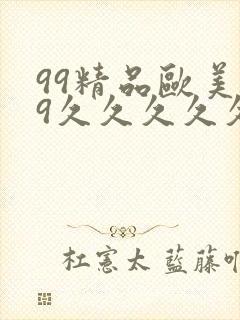 99精品歐美
9久久久久久
杜憲太 藍藤叩